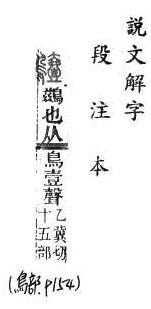 說文解字
段注本
鷧
鷀也从鳥壹聲
乙冀切
十五部
(鳥部 p154)